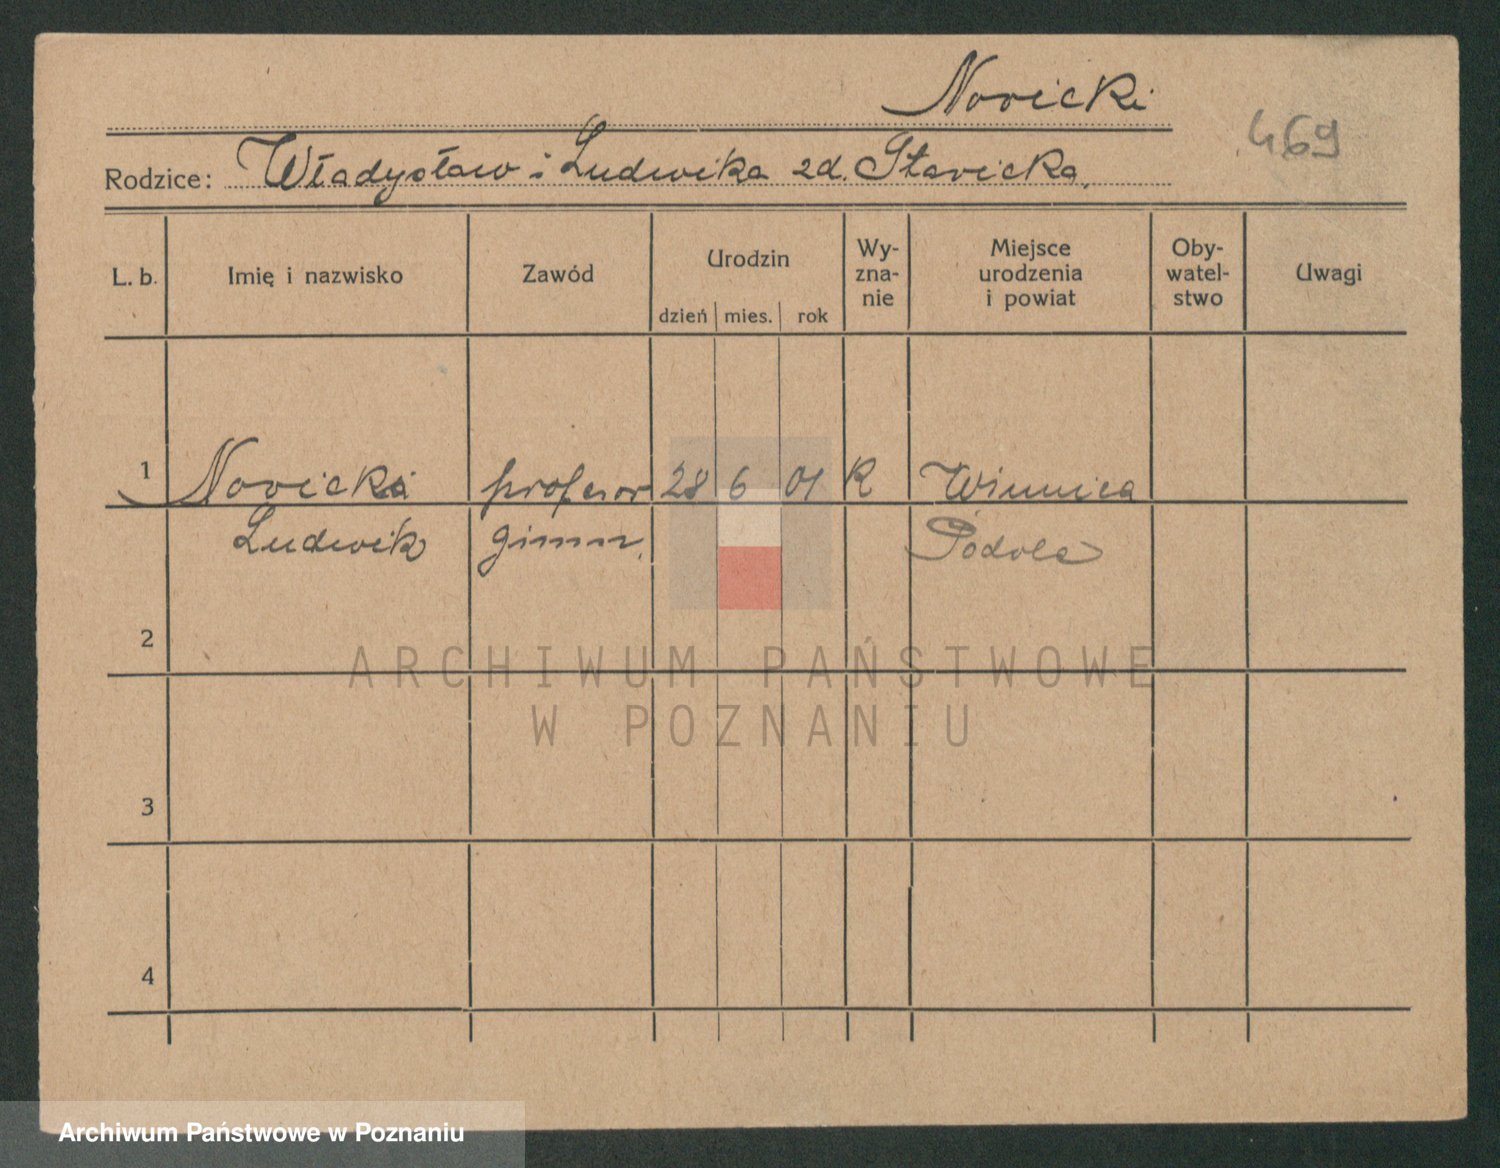 Novicki
469
Rodzice: Władysław i Ludwika zd. Stavicka.
L. b. Imię i nazwisko Zawód Urodzin dzień mies. rok Wy-zna-nie Miejsce urodzenia i powiat Oby-watel-stwo Uwagi
1 Novicki profesor 28 6 01 R Winnica
Ludwik gimn. Podole
2
3
4
ARCHIWUM PAŃSTWOWE
W POZNANIU
Archiwum Państwowe w Poznaniu